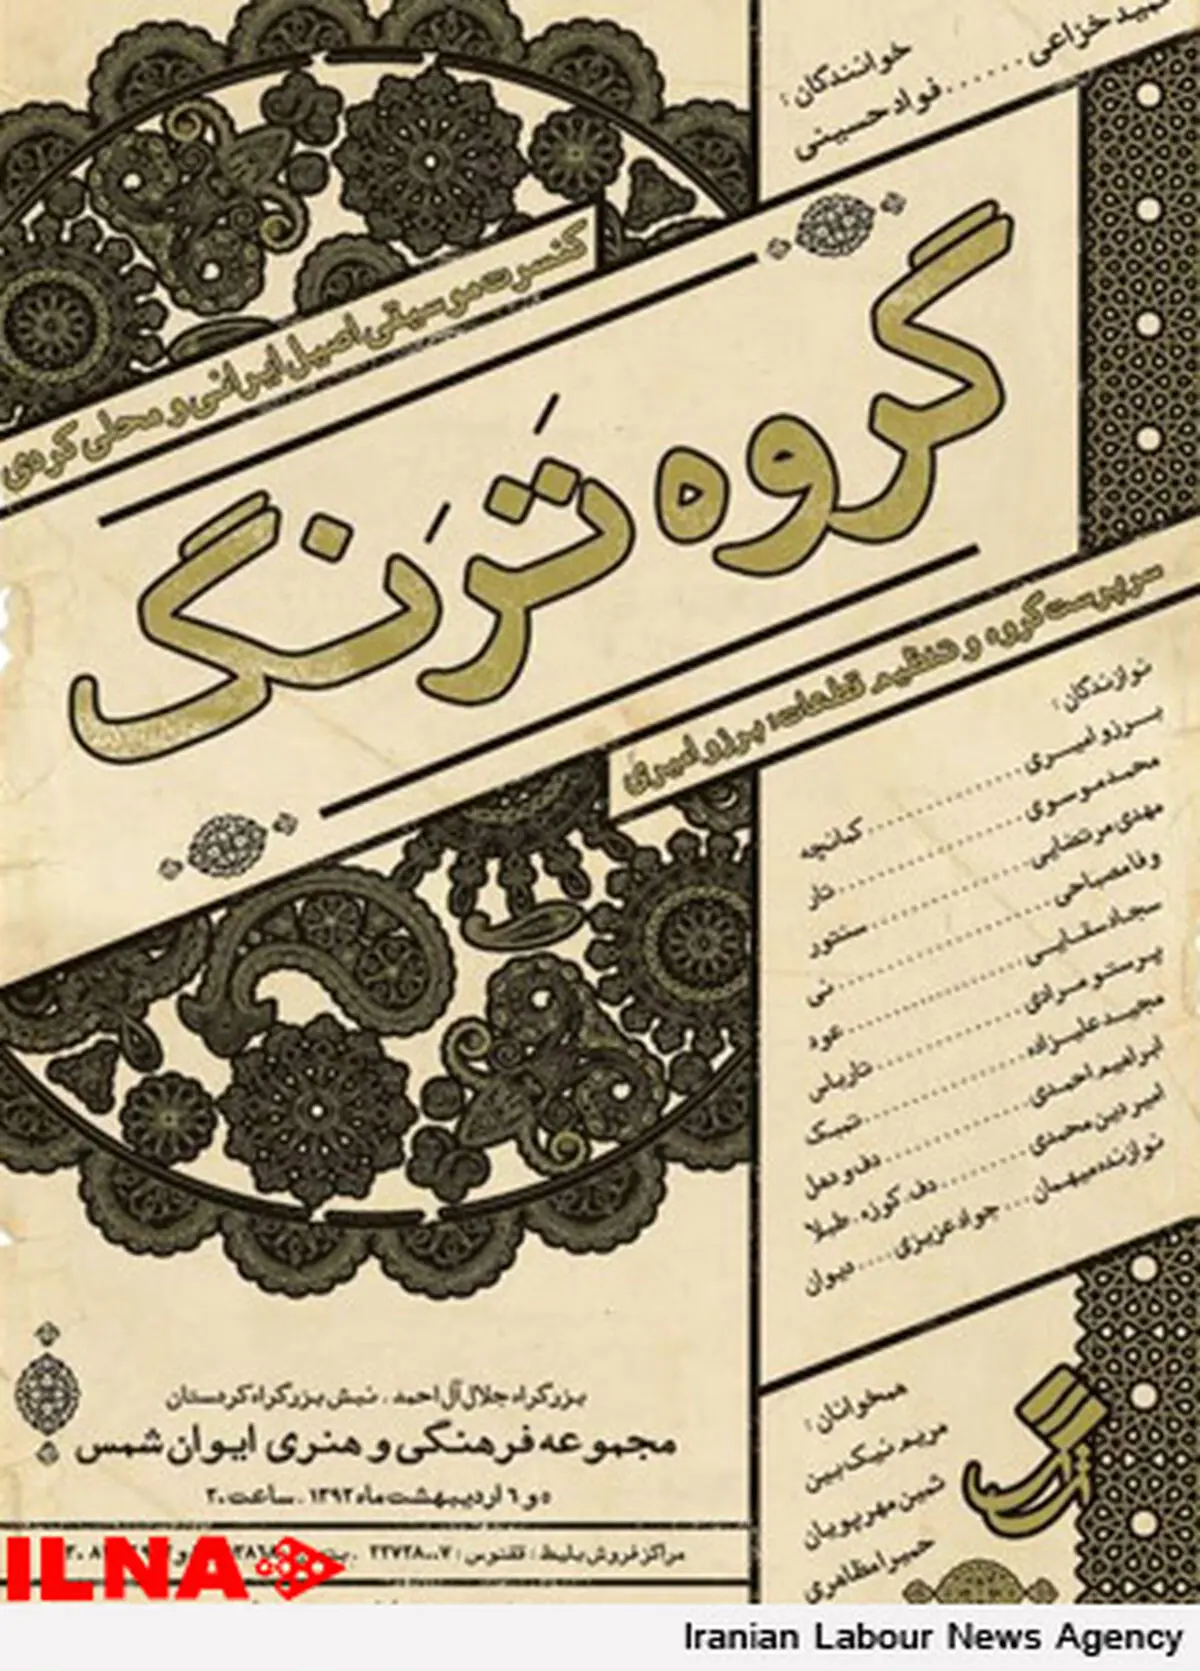 خوانندگان:
فواد حسینی......حمید خزاعی
کنسرت موسیقی اصیل ایرانی و محلی کردی
گروه تَرَنگ
سرپرست گروه و تنظیم قطعات: برزو امیری
نوازندگان:
برزو امیری..........کمانچه
محمد موسوی..........تار
مهدی مرتضایی..........سنتور
وفا مصباحی..........نی
سجاد سقایی..........عود
پرستو مرادی..........تارباس
مجید علیزاده..........تمبک
ابراهیم احمدی..........دف و دهل
امیر دین محمدی........دف، کوزه، طبلا
نوازنده میهمان...جواد عزیزی....دیوان
همخوانان:
مریم نیک بین
ثمین مهرپویان
حمیرا مظاهری
ترنگ
بزرگراه جلال آل احمد، نبش بزرگراه کردستان
مجموعه فرهنگی و هنری ایوان شمس
۵ و ۶ اردیبهشت ماه ۱۳۹۲، ساعت ۲۰
مراکز فروش بلیط: ققنوس: ۲۲۷۲۸۰۰۷
ILNA
Iranian Labour News Agency